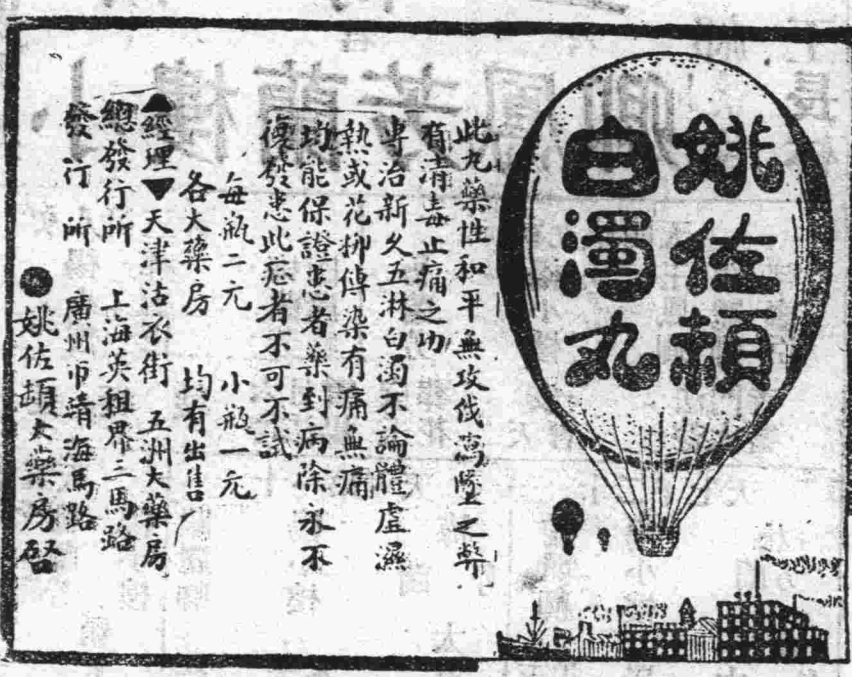 姚佐頓
白濁丸
此丸藥性和平無攻伐瀉墜之弊
有清毒止痛之功
專治新久五淋白濁不論體虛濕
熱或花柳傳染有痛無痛
均能保證患者藥到病除永不
復發患此症者不可不試
每瓶二元 小瓶一元
各大藥房 均有出售
▲經理▼天津沽衣街 五洲大藥房
總發行所 上海英租界二馬路
發行所 廣州市靖海馬路
●姚佐頓大藥房啓